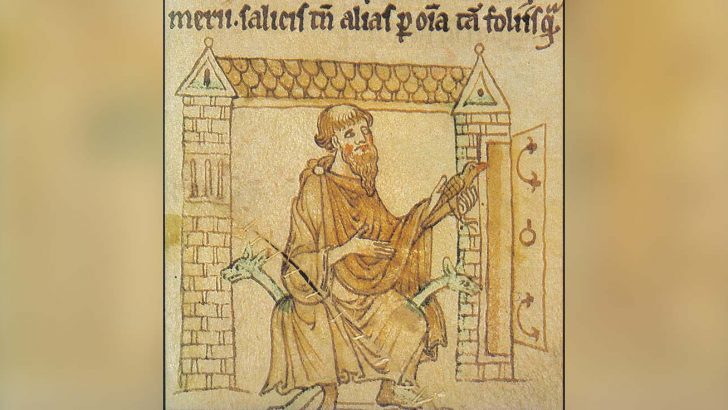 merii. salicis tn̄ alias ꝑ oīa tā foliis q̄